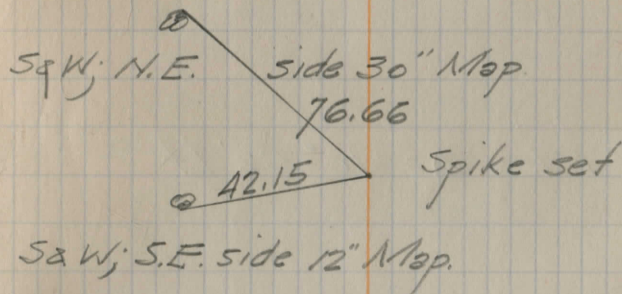 S&W; N.E. side 30" Map.
76.66
Spike set
42.15
S&W; S.E. side 12" Map.